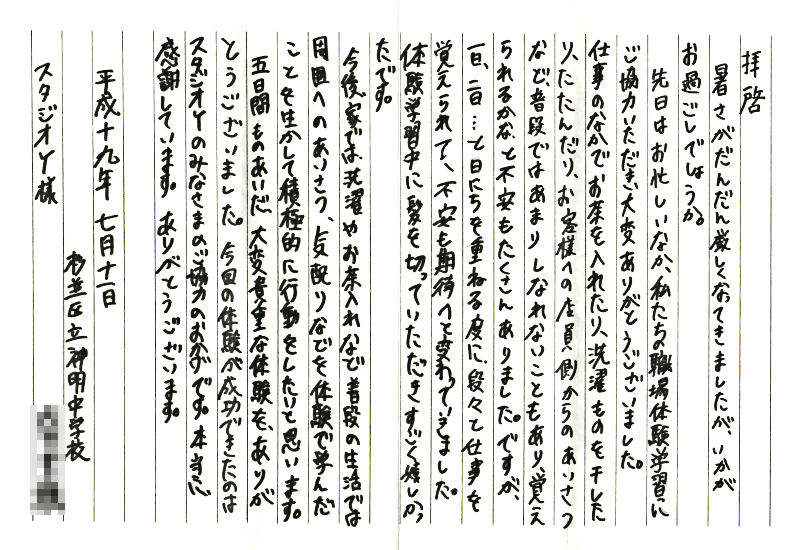 拝啓
暑さがだんだん厳しくなってきましたが、いかが
お過ごしでしょうか。
先日はお忙しいなか、私たちの職場体験学習に
ご協力いただき、大変ありがとうございました。
仕事のなかでお茶を入れたり、洗濯ものを干した
り、たたんだり、お客様への店員側からのあいさつ
など、普段ではあまりしなれないこともあり、覚え
られるかなと不安もたくさんありました。ですが、
一日、二日…と日にちを重ねる度に、段々と仕事を
覚えられて、不安も期待へと変わっていきました。
体験学習中に髪を切っていただきすごく嬉しかっ
たです。
今後、家では、洗濯やお茶入れなど、普段の生活では
周囲へのあいさつ、気配りなどを体験で学んだ
ことを生かして積極的に行動をしたいと思います。
五日間ものあいだ、大変貴重な体験を、ありが
とうございました。今回の体験が成功できたのは
スタジオYのみなさまのご協力のおかげです。本当に
感謝しています。ありがとうございます。
平成十九年 七月十一日
杉並区立神明中学校
スタジオY様